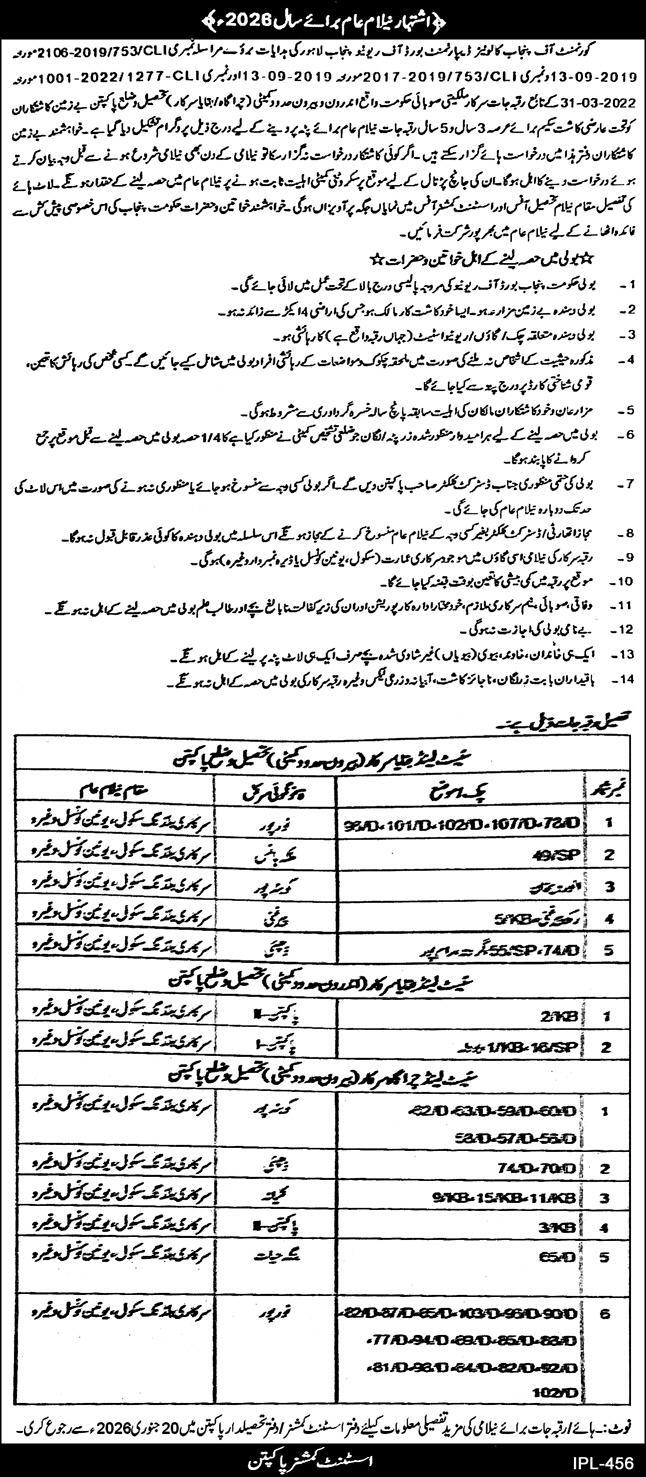 ﴿اشتہار نیلام عام برائے سال 2026ء﴾
گورنمنٹ آف پنجاب کالونیز ڈیپارٹمنٹ بورڈ آف ریونیو پنجاب لاہور کی ہدایات بروئے مراسلہ نمبری 2106-2019/753/CLI مورخہ
13-09-2019 و نمبری 2017-2019/753/CLI مورخہ 13-09-2019 اور نمبری 1001-2022/1277-CLI مورخہ
31-03-2022 کے تابع رقبہ جات سرکار ملکیتی صوبائی حکومت واقع اندرون و بیرون حدود کمیٹی (چراگاہ/بقایا سرکار) تحصیل و ضلع پاکپتن بے زمین کاشتکاران
کو تحت عارضی کاشت سکیم برائے عرصہ 3 سال و 5 سال رقبہ جات نیلام عام برائے پٹہ پر دینے کے لیے درج ذیل پروگرام تشکیل دیا گیا ہے۔ خواہشمند بے زمین
کاشتکاران دفتر ہذا میں درخواست ہائے گزار سکتے ہیں۔ اگر کوئی کاشتکار درخواست نہ گزار سکا تو نیلامی کے دن بھی نیلامی شروع ہونے سے قبل وجہ بیان کرتے
ہوئے درخواست دینے کا اہل ہوگا۔ ان کی جانچ پڑتال کے لیے موقع پر سکروٹنی کمیٹی اہلیت ثابت ہونے پر نیلام عام میں حصہ لینے کے حقدار ہونگے۔ لاٹ ہائے
کی تفصیل مقام نیلام تحصیل آفس اور اسسٹنٹ کمشنر آفس میں نمایاں جگہ پر آویزاں ہوگی۔ خواہشمند خواتین و حضرات حکومت پنجاب کی اس خصوصی پیش کش سے
فائدہ اٹھانے کے لیے نیلام عام میں بھرپور شرکت فرمائیں۔
☆ بولی میں حصہ لینے کے اہل خواتین و حضرات ☆
1- بولی حکومت پنجاب بورڈ آف ریونیو کی مروجہ پالیسی درج بالا کے تحت عمل میں لائی جائے گی۔
2- بولی دہندہ بے زمین مزارعہ ہو۔ ایسا خود کاشت کار مالک ہو جس کی اراضی 4 ایکڑ سے زائد نہ ہو۔
3- بولی دہندہ متعلقہ چک/گاؤں/ریونیو اسٹیٹ (جہاں رقبہ واقع ہے) کا رہائشی ہو۔
4- مذکورہ حیثیت کے اشخاص نہ ملنے کی صورت میں ملحقہ چکوک و مواضعات کے رہائشی افراد بولی میں شامل کیے جائیں گے۔ کسی شخص کی رہائش کا تعین،
قومی شناختی کارڈ پر درج پتہ سے کیا جائے گا۔
5- مزارعان و خود کاشتکاران مالکان کی اہلیت سابقہ پانچ سالہ خسرہ گرداوری سے مشروط ہوگی۔
6- بولی میں حصہ لینے کے لیے ہر امیدوار منظور شدہ زر پٹہ/لگان جو ضلعی تشخیص کمیٹی نے منظور کیا ہے کا 1/4 حصہ بولی میں حصہ لینے سے قبل موقع پر جمع
کروانے کا پابند ہوگا۔
7- بولی کی حتمی منظوری جناب ڈسٹرکٹ کلکٹر صاحب پاکپتن دیں گے۔ اگر بولی کسی وجہ سے منسوخ ہو جائے یا منظوری نہ ہونے کی صورت میں اس لاٹ کی
حد تک دوبارہ نیلام عام کی جائے گی۔
8- مجاز اتھارٹی/ڈسٹرکٹ کلکٹر بغیر کسی وجہ کے نیلام عام منسوخ کرنے کے مجاز ہونگے اس سلسلہ میں بولی دہندہ کا کوئی عذر قابل قبول نہ ہوگا۔
9- رقبہ سرکار کی نیلامی اسی گاؤں میں موجود سرکاری عمارت (سکول، یونین کونسل یا ڈیرہ نمبردار وغیرہ) ہوگی۔
10- موقع پر رقبہ میں کمی بیشی کا تعین بوقت قبضہ کیا جائے گا۔
11- وفاقی، صوبائی، نیم سرکاری ملازم، خودمختار ادارہ کارپوریشن اور ان کی زیر کفالت نابالغ بچے اور طالب علم بولی میں حصہ لینے کے اہل نہ ہونگے۔
12- بے نامی بولی کی اجازت نہ ہوگی۔
13- ایک ہی خاندان، خاوند، بیوی (بیویاں) غیر شادی شدہ بچے صرف ایک ہی لاٹ پٹہ پر لینے کے اہل ہونگے۔
14- باقیداران بابت زر لگان، ناجائز کاشت، آبیانہ و زرعی ٹیکس وغیرہ رقبہ سرکار کی بولی میں حصہ کے اہل نہ ہونگے۔
تفصیل رقبہ جات ذیل ہے۔
سٹیٹ لینڈ بقایا سرکار (بیرون حدود کمیٹی) تحصیل و ضلع پاکپتن
نمبر شمار چک/موضع قانونگوئی سرکل مقام نیلام عام
1 98/D-101/D-102/D-107/D-78/D نورپور سرکاری بلڈنگ سکول، یونین کونسل وغیرہ
2 49/SP ملکہ ہانس سرکاری بلڈنگ سکول، یونین کونسل وغیرہ
3 کوٹ پور سرکاری بلڈنگ سکول، یونین کونسل وغیرہ
4 5/KB سرکاری بلڈنگ سکول، یونین کونسل وغیرہ
5 55/SP-74/D سرکاری بلڈنگ سکول، یونین کونسل وغیرہ
سٹیٹ لینڈ بقایا سرکار (اندرون حدود کمیٹی) تحصیل و ضلع پاکپتن
1 2/KB پاکپتن-II سرکاری بلڈنگ سکول، یونین کونسل وغیرہ
2 1/KB-16/SP پاکپتن-I سرکاری بلڈنگ سکول، یونین کونسل وغیرہ
سٹیٹ لینڈ چراگاہ سرکار (بیرون حدود کمیٹی) تحصیل و ضلع پاکپتن
1 62/D-63/D-59/D-60/D- کوٹ پور سرکاری بلڈنگ سکول، یونین کونسل وغیرہ
58/D-57/D-56/D
2 74/D-70/D سرکاری بلڈنگ سکول، یونین کونسل وغیرہ
3 9/KB-15/KB-11/KB سرکاری بلڈنگ سکول، یونین کونسل وغیرہ
4 3/KB پاکپتن-II سرکاری بلڈنگ سکول، یونین کونسل وغیرہ
5 65/D سرکاری بلڈنگ سکول، یونین کونسل وغیرہ
6 82/D-87/D-85/D-103/D-96/D-90/D- نورپور سرکاری بلڈنگ سکول، یونین کونسل وغیرہ
77/D-94/D-89/D-85/D-83/D-
81/D-98/D-84/D-82/D-92/D-
102/D
نوٹ:۔ ہائے/رقبہ جات برائے نیلامی کی مزید تفصیلی معلومات کیلئے دفتر اسسٹنٹ کمشنر/دفتر تحصیلدار پاکپتن میں 20 جنوری 2026ء سے رجوع کریں۔
اسسٹنٹ کمشنر پاکپتن
IPL-456